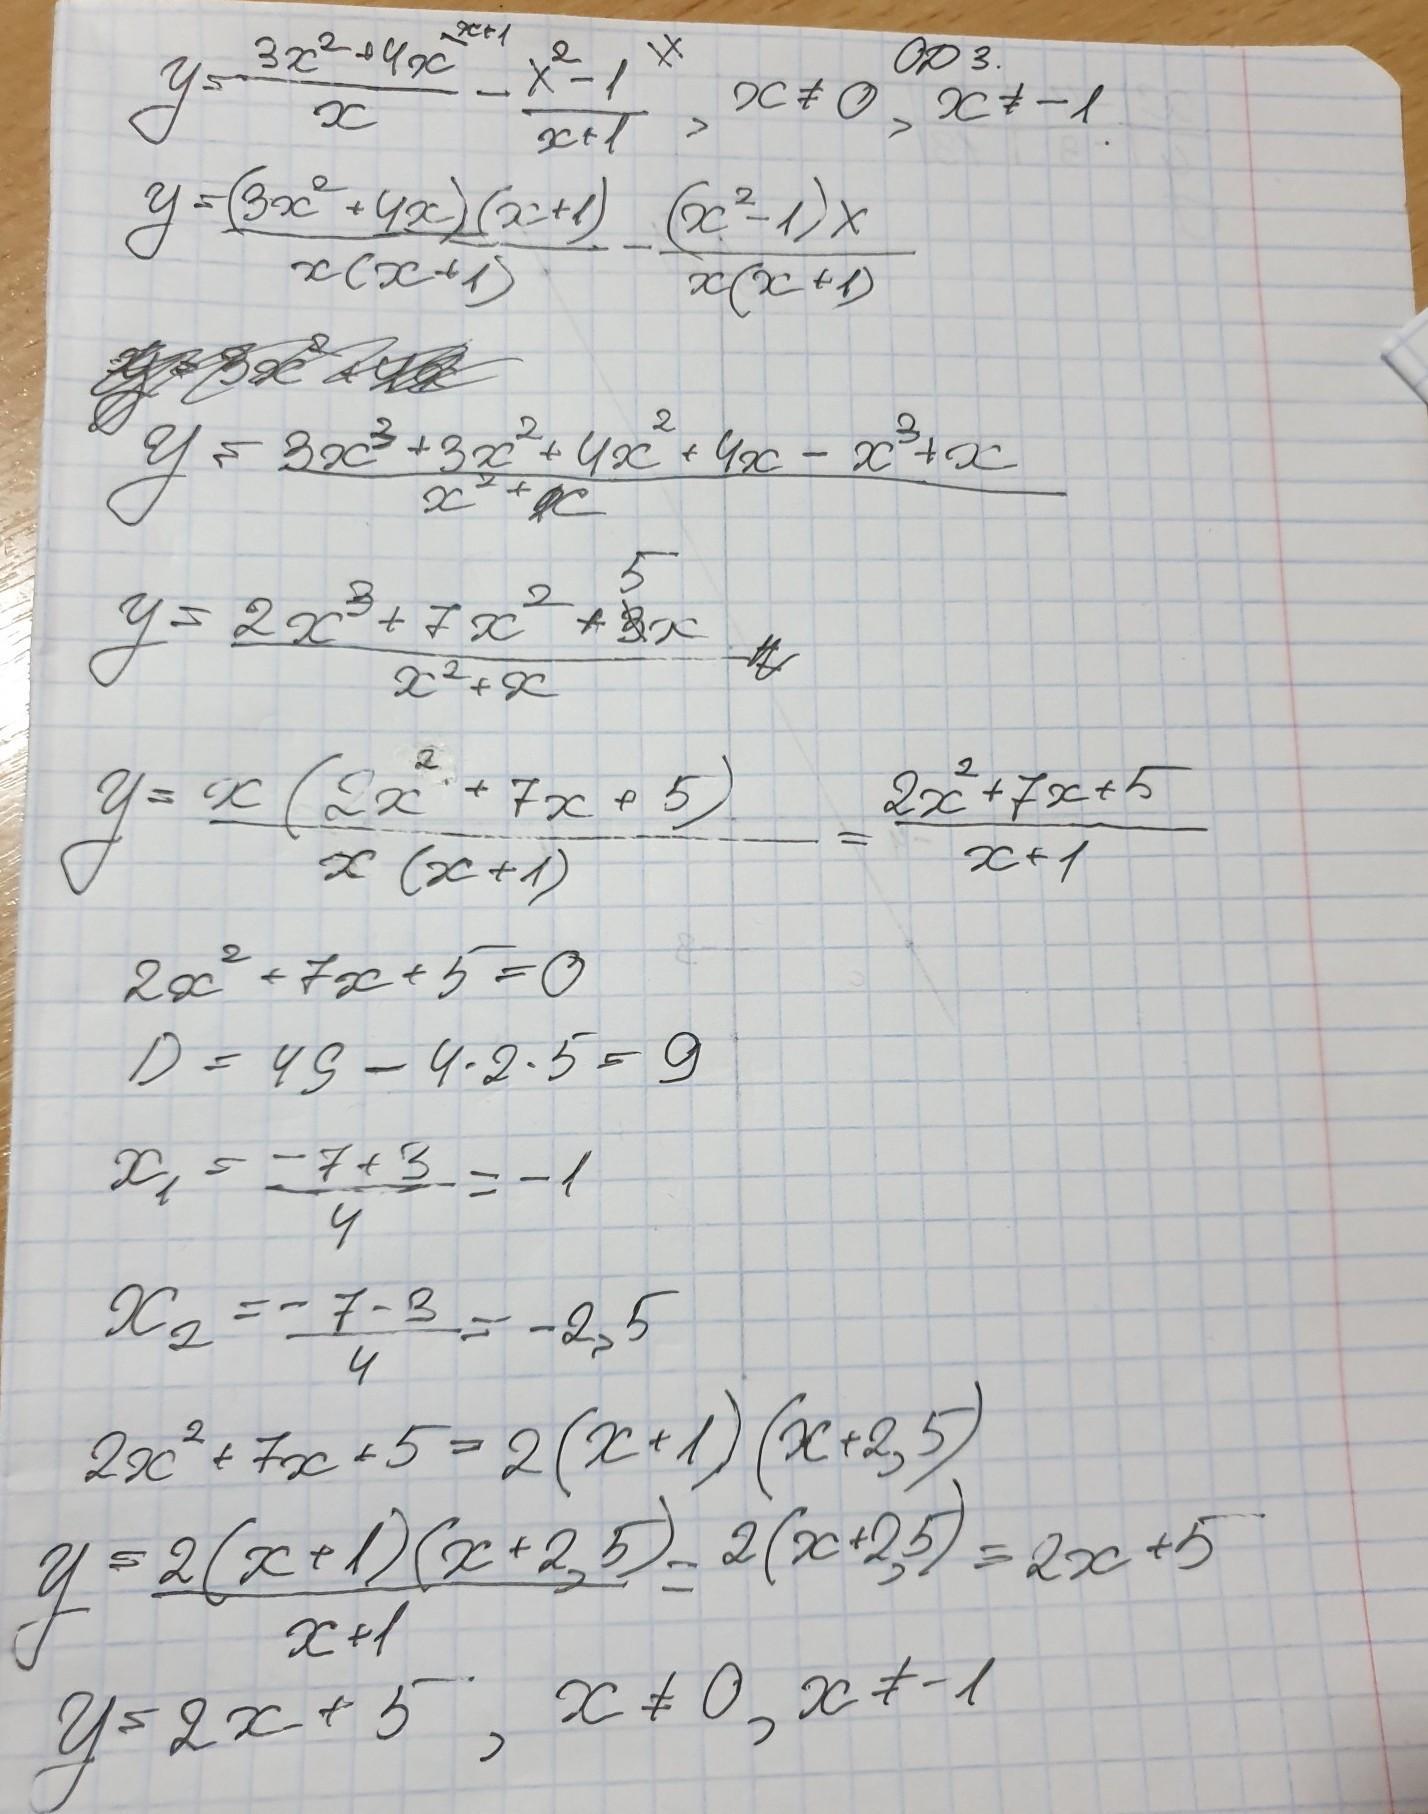 y = (3x² + 4x)/x ^(x+1) - (x² - 1)/(x+1) ^x , x ≠ 0, x ≠ -1. ОДЗ.
y = (3x² + 4x)(x+1)/x(x+1) - (x² - 1)x/x(x+1)
y = (3x³ + 3x² + 4x² + 4x - x³ + x)/(x² + x)
y = (2x³ + 7x² + 5x)/(x² + x)
y = x(2x² + 7x + 5)/x(x+1) = (2x² + 7x + 5)/(x+1)
2x² + 7x + 5 = 0
D = 49 - 4·2·5 = 9
x₁ = (-7+3)/4 = -1
x₂ = (-7-3)/4 = -2,5
2x² + 7x + 5 = 2(x+1)(x+2,5)
y = 2(x+1)(x+2,5)/(x+1) = 2(x+2,5) = 2x+5
y = 2x + 5, x ≠ 0, x ≠ -1